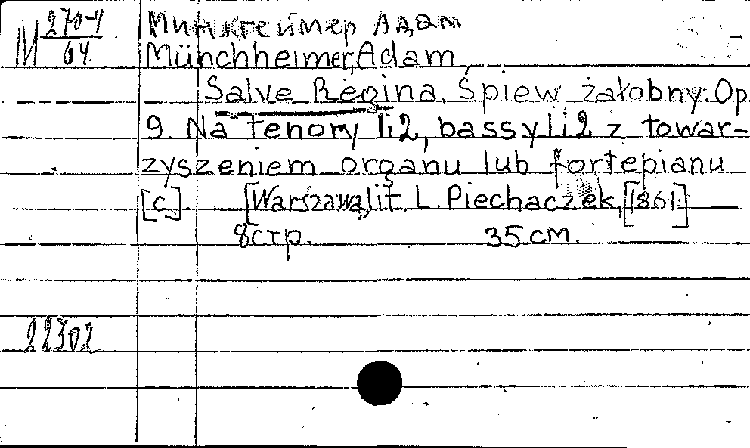 М 270-4/64
Минхгеймер Адам
Münchheimer, Adam,
Salve Regina. Śpiew żałobny. Op.
9. Na tenory 1 i 2, bassy 1 i 2 z towar-
zyszeniem organu lub fortepianu
[c. [Warszawa], lit. L. Piechaczek, [186].]
8 стр. 35 см.
22302